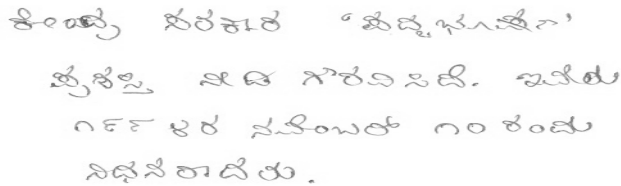 ಕೇಂದ್ರ ಸರಕಾರ 'ಪದ್ಮಭೂಷಣ'
ಪ್ರಶಸ್ತಿ ನೀಡಿ ಗೌರವಿಸಿದೆ. ಇವರು
೧೯೯೪ರ ನವೆಂಬರ್ ೧೦ ರಂದು
ನಿಧನರಾದರು.